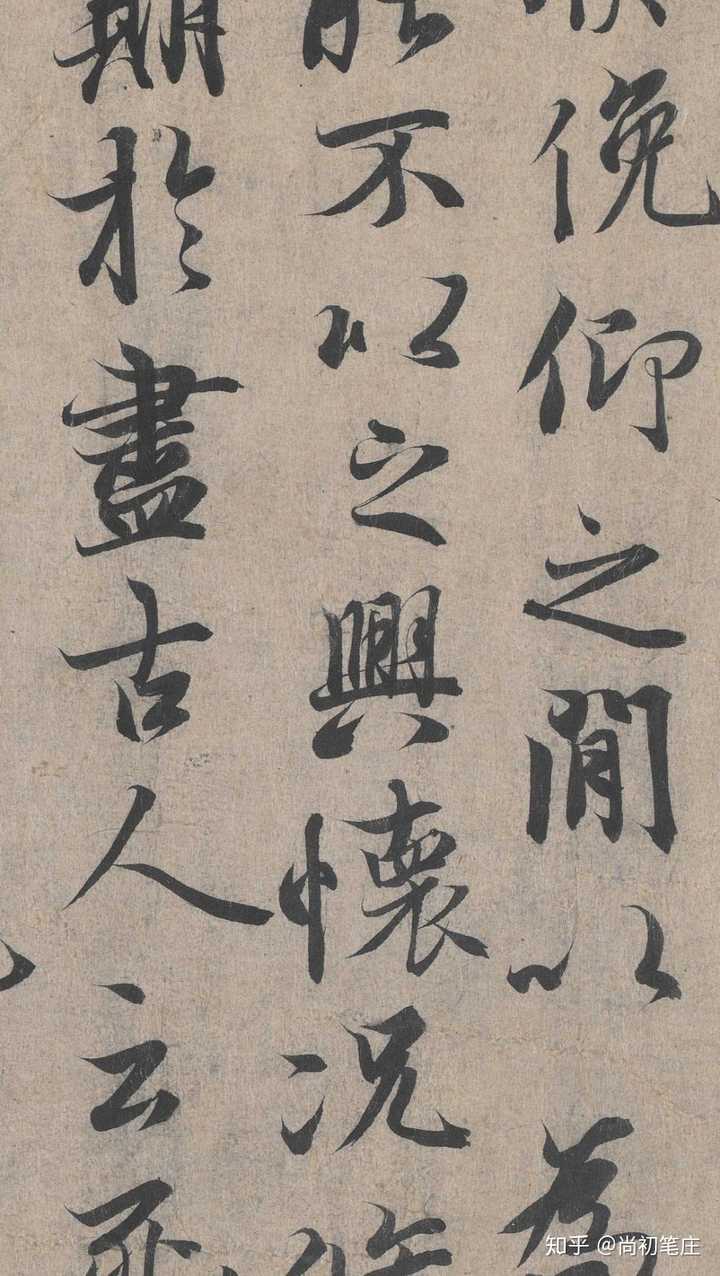 俛仰之閒以
不以之興懷况
期於盡古人云
知乎 @尚初笔庄